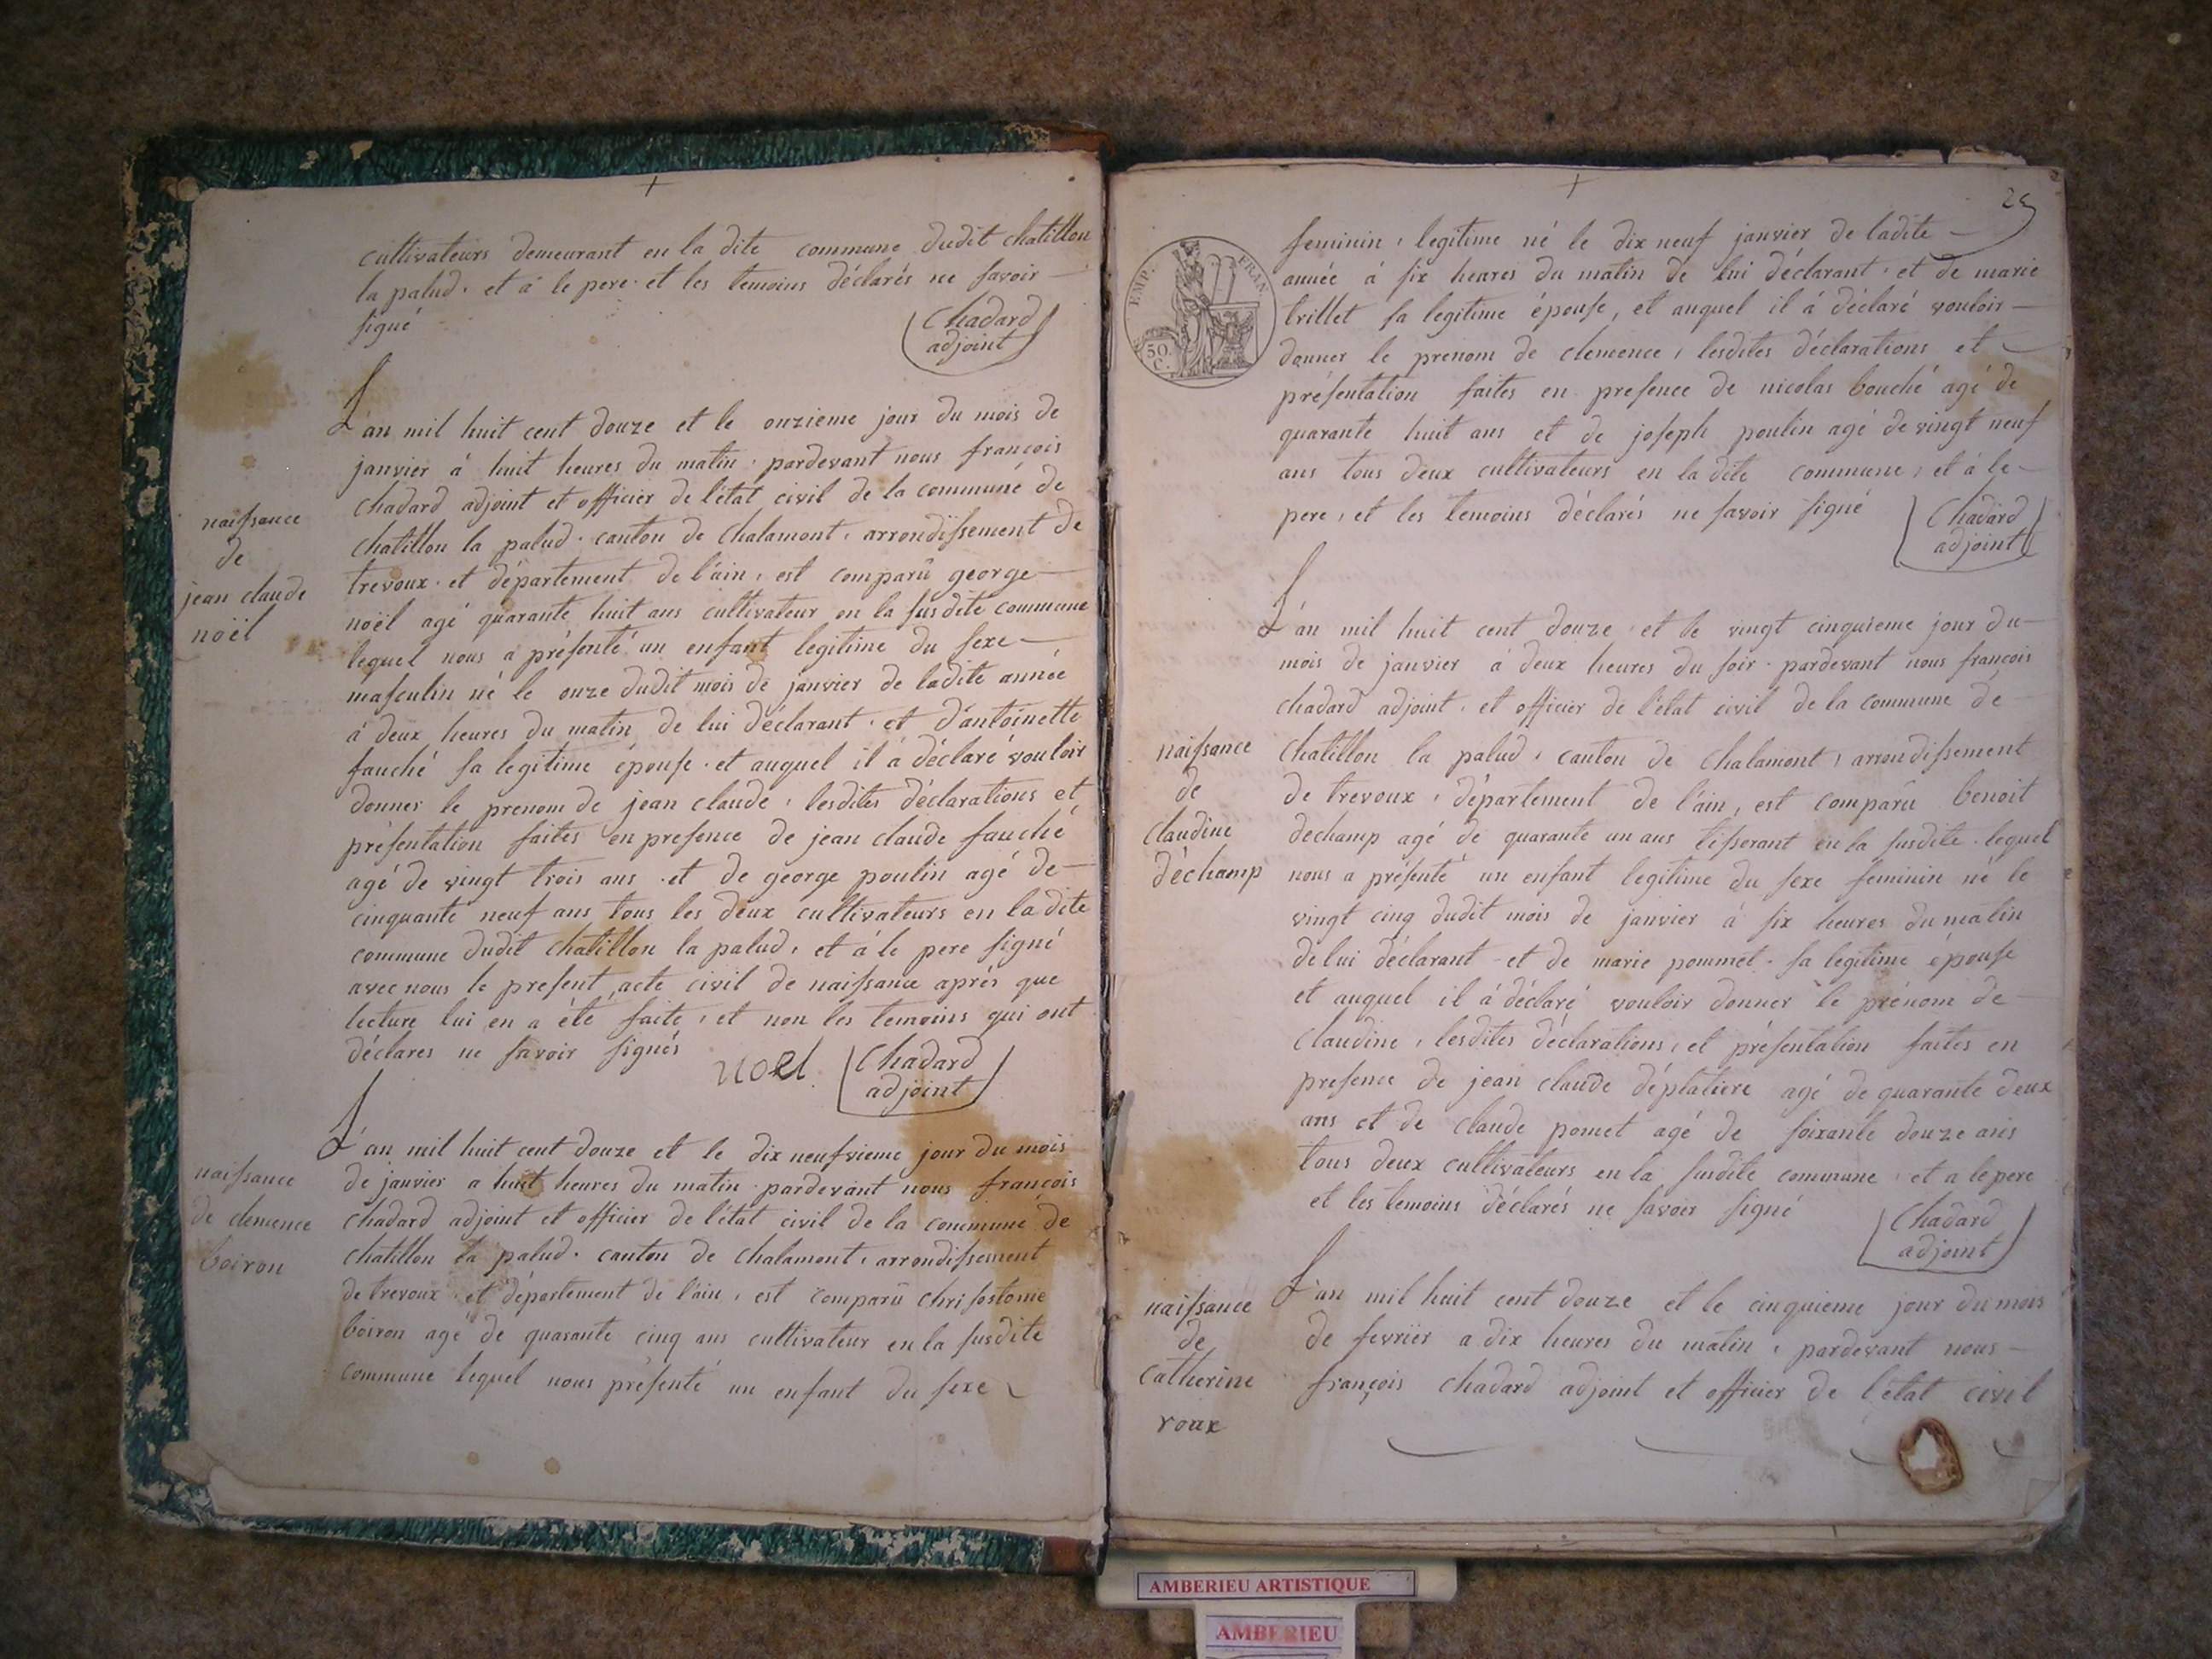 cultivateurs demeurant en la dite commune dudit chatillon
la palud. et à le pere et les temoins déclarés ne savoir
signé
Chadard
adjoint
L'an mil huit cent douze et le onzieme jour du mois de
janvier à huit heures du matin. pardevant nous françois
chadard adjoint et officier de l'état civil de la commune de
chatillon la palud. canton de chalamont, arrondissement de
trevoux. et département de l'ain, est comparû george
noël agé quarante huit ans cultivateur en la susdite commune
lequel nous a présenté un enfant legitime du sexe
masculin né le onze dudit mois de janvier de ladite année
à deux heures du matin de lui déclarant. et d'antoinette
fauché sa legitime épouse. et auquel il a déclaré vouloir
donner le prenom de jean claude, lesdites déclarations et
présentation faites en presence de jean claude fauché
agé de vingt trois ans. et de george poulin agé de
cinquante neuf ans tous les deux cultivateurs en la dite
commune dudit chatillon la palud, et à le pere signé
avec nous le present acte civil de naissance après que
lecture lui en a été faite, et non les temoins qui ont
déclares ne savoir signés
noel
Chadard
adjoint
naissance
de
jean claude
noël
L'an mil huit cent douze et le dix neufvieme jour du mois
de janvier a huit heures du matin. pardevant nous françois
chadard adjoint et officier de l'état civil de la commune de
chatillon la palud. canton de chalamont, arrondissement
de trevoux et département de l'ain, est comparû chrisostome
boiron agé de quarante cinq ans cultivateur en la susdite
commune lequel nous présenté un enfant du sexe
naissance
de clemence
boiron
25
EMP. FRAN.
50
C.
feminin, legitime né le dix neuf janvier de ladite
année à six heures du matin de lui déclarant, et de marie
brillet sa legitime épouse, et auquel il à déclaré vouloir
donner le prenom de clemence, lesdites déclarations et
présentation faites en presence de nicolas bouché agé de
quarante huit ans et de joseph poulin agé de vingt neuf
ans tous deux cultivateurs en la dite commune, et à le
pere, et les temoins déclarés ne savoir signé
Chadard
adjoint
L'an mil huit cent douze et le vingt cinquieme jour du
mois de janvier à deux heures du soir. pardevant nous françois
chadard adjoint. et officier de l'état civil de la commune de
chatillon la palud, canton de chalamont, arrondissement
de trevoux, département de l'ain, est comparû benoit
dechamp agé de quarante un ans tisserant en la susdite. lequel
nous a présenté un enfant legitime du sexe feminin né le
vingt cinq dudit mois de janvier à six heures du matin
de lui déclarant et de marie pommet. sa legitime épouse
et auquel il à déclaré vouloir donner le prénom de
claudine, lesdites déclarations, et présentation faites en
presence de jean claude déplatiere agé de quarante deux
ans et de claude pomet agé de soixante douze ans
tous deux cultivateurs en la susdite commune, et a le pere
et les temoins déclarés ne savoir signé
Chadard
adjoint
naissance
de
claudine
déchamp
L'an mil huit cent douze et le cinquieme jour du mois
de fevrier a dix heures du matin, pardevant nous
françois chadard adjoint et officier de l'état civil
naissance
de
catherine
roux
AMBERIEU ARTISTIQUE
AMBERIEU